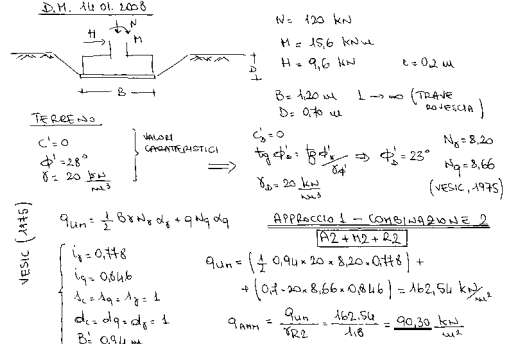 D.M. 14.01.2008
N
H
M
D
B
N = 120 kN
M = 15,6 kNm
H = 9,6 kN e = 0,2 m
B = 1,20 m L → ∞ (TRAVE ROVESCIA)
D = 0,70 m
TERRENO
C' = 0
ϕ' = 28°
γ = 20 kN/m³
VALORI CARATTERISTICI
⇒
C'd = 0
tg ϕ'd = tg ϕ'k / γϕ' ⇒ ϕ'd = 23°
γD = 20 kN/m³
Nγ = 8,20
Nq = 8,66
(VESIC, 1975)
VESIC (1975)
qlim = 1/2 B γ Nγ αγ + q Nq αq
iγ = 0,778
iq = 0,846
sc = sq = sγ = 1
dc = dq = dγ = 1
B' = 0,94 m
APPROCCIO 1 - COMBINAZIONE 2
A2 + M2 + R2
qlim = (1/2 0,94 × 20 × 8,20 × 0,778) +
+ (0,7 × 20 × 8,66 × 0,846) = 162,54 kN/m²
qAMM = qlim / γR2 = 162.54 / 1,8 = 90,30 kN/m²